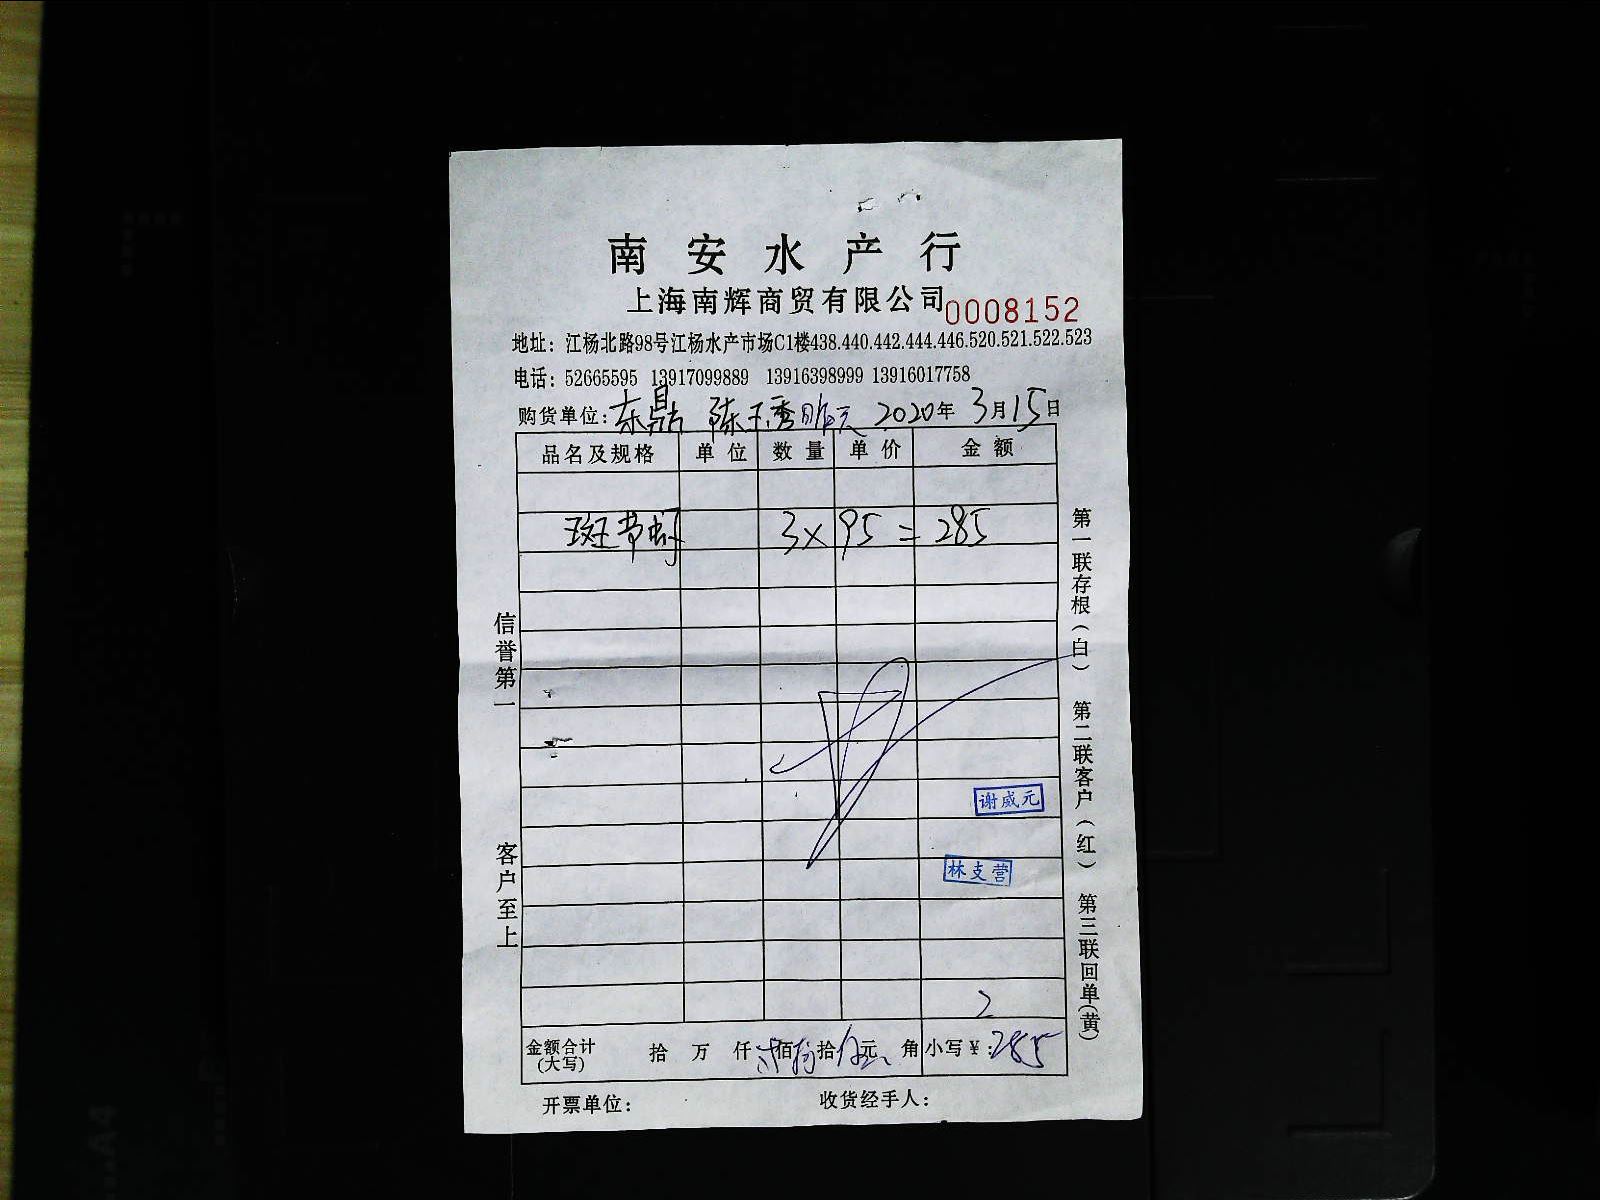 南安水产行
上海南辉商贸有限公司 0008152
地址：江杨北路98号江杨水产市场C1楼438.440.442.444.446.520.521.522.523
电话：52665595 13917099889 13916398999 13916017758
购货单位：东鼎 陈玉秀昨天 2020年3月15日
品名及规格 单位 数量 单价 金额
斑节虾 3×95=285
谢威元
林支营
金额合计(大写) 拾 万 仟 佰 拾 元 角 小写￥：285
开票单位： 收货经手人：
信誉第一 客户至上
第一联存根(白) 第二联客户(红) 第三联回单(黄)